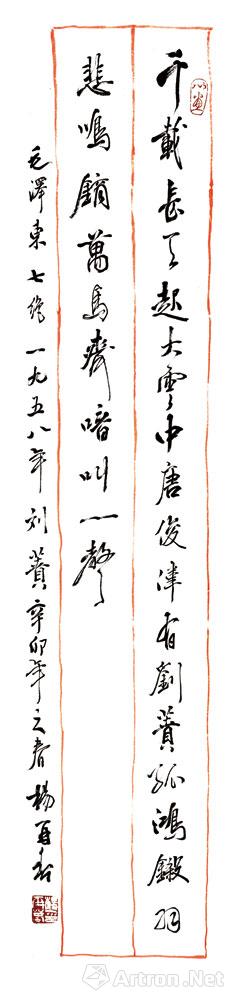 心畫
千載長天起大雲中唐俊偉有劉蕡孤鴻鎩羽
悲鳴鏑萬馬齊喑叫一聲
毛澤東七絕一九五八年刘蕡辛卯年之春楊再春
Artron.Net